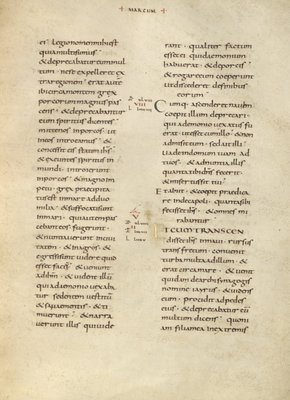 MARCUM
et legionomenmihiest
quia multi sumus
& deprecabatur eum mul
tum · ne se expelleret ex
tra regionem · erat aute
ibi circa montem grex
porcorum magnus pas
cens · & deprecabantur
eum spiritus dicentes ·
mitte nos in porcos · ut
in eos introeamus · &
concessit eis statim ihs
& exeuntes spiritus in
mundi · introierunt
in porcos · & magno im
petu · grex praecipita
tus est in mare ad duo
milia · & suffocati sunt
in mari · qui autem pas
cebant eos fugerunt ·
& nuntiauerunt in ciui
tatem · & in agros · &
egressi sunt uidere quid
esset facti · & ueniunt
ad ihm · & uident illū
qui a daemonio uexaba
tur sedentem uestitū
& sanae mentis · & ti
muerunt · & narra
uerunt illis qui uide
rant · qualiter factum
esset ei qui daemonium
habuerat · & de porcis ·
& rogare eum coeperunt
ut discederet de finibus
eorum ·
Cumque ascenderet nauem
coepit illum deprecari ·
qui a daemonio uexatus fu
erat ut esset cum illo · & non
admisit eum · sed ait illi ·
uade in domum tuam ad
tuos · & adnuntia illis
quanta tibi dns fecerit ·
& misertus sit tui ·
Et abiit · & coepit praedica
re in decapoli · quanta sibi
fecisset ihs · & omnes mi
rabantur ·
ET CUM TRANSCEN
disset ihs in naui · rursus
trans fretum · conuenit
turba multa ad illum · &
erat circa mare · & uenit
quidam de archisynagogis
nomine iairus · & uidens
eum · procidit ad pedes
eius · & deprecabatur eū
multum dicens · quoni
am filia mea in extremis